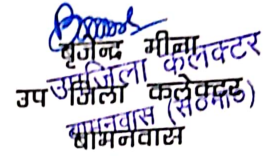 बृजेन्द्र मीना
उपजिला कलेक्टर
उप जिला कलेक्टर
बामनवास (स०मा०)
बामनवास